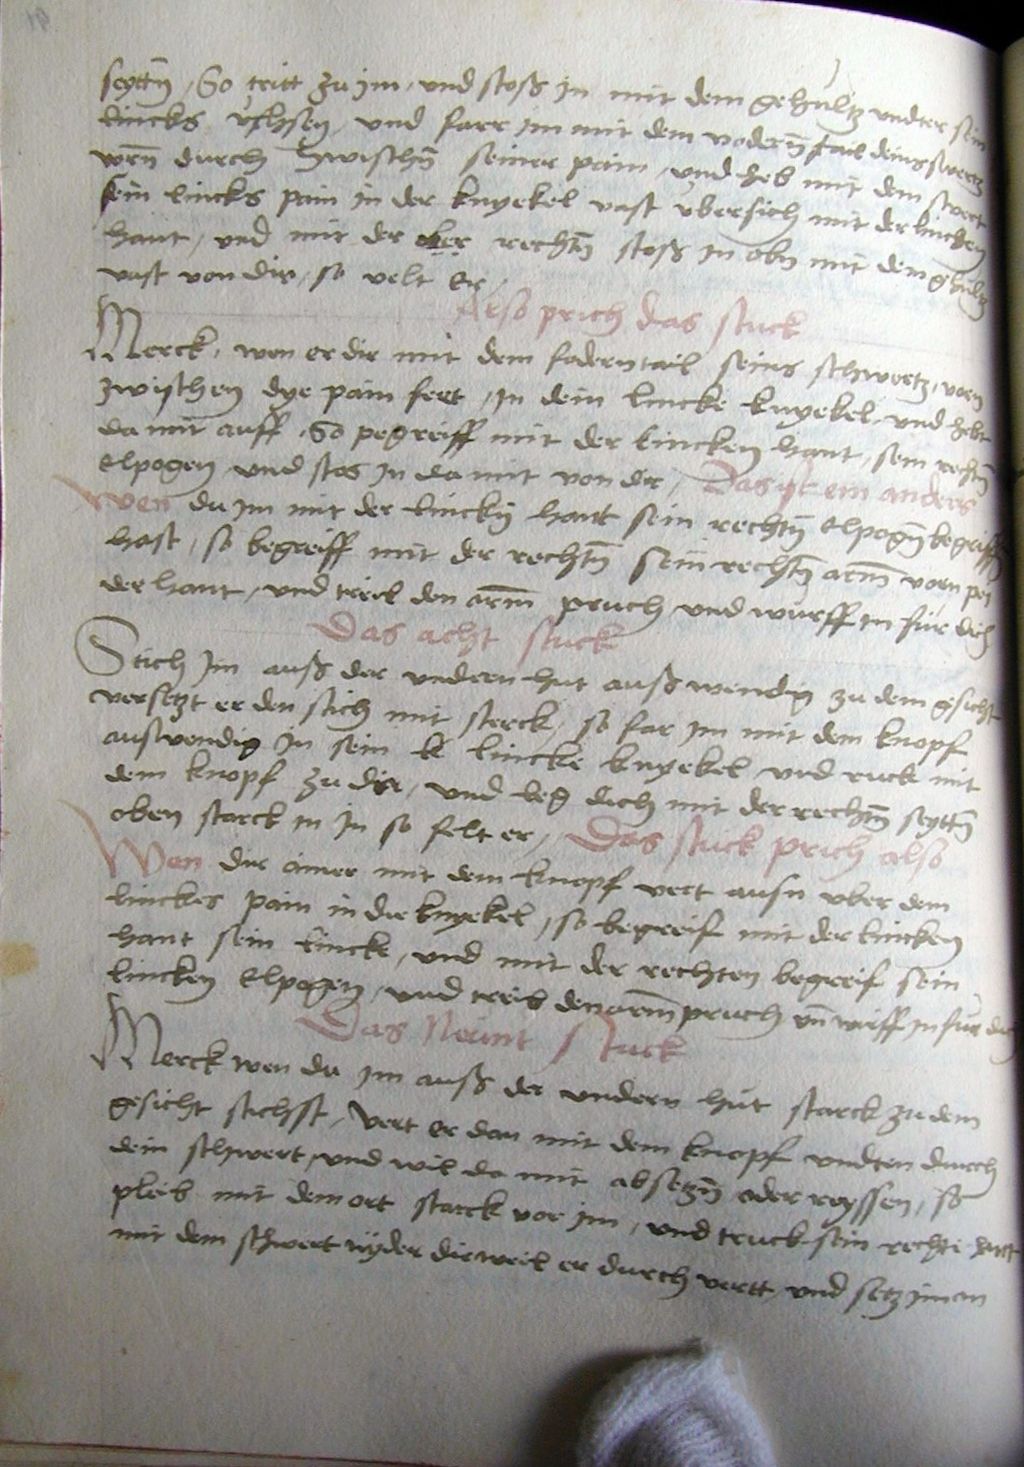 seyttñ / So tritt zu im / und stoß in mit dem gehültz undter sein
lincks üchsen / und farr im mit dem vodern tail deins swertz
vorñ durch zwischñ seiner pain / und heb mit dem swert
sein lincks pain in der knyekel vast übersich mit der lincken
hant / und mit der ober rechtñ stoß in obñ mit dem ghültz
vast von dir / so velt er /
Also prich das stuck
Merck / wen er dir mit dem fodern tail seins schwertz / vorn
zwischen dye pain fert / in dein lincke knyekel / und hebt
da mit auff / So pegreiff mit der lincken hant / sein rechtñ
Elpogen und stos in da mit von dir / Das ist ein anders
Wen du im mit der linckñ hant sein rechtñ Elpogñ begriffñ
hast / so begreiff mit der rechtñ sein rechtñ arm vorn pei
der hant / und treib den arm pruch und würff in für dich
Das acht stuck
Stich Im auß der undern hut außwendig zu dem gesicht
versetzt er den stich mit sterck / so far im mit dem knopf
auswendig In sein k lincke knyekel und ruck mit
dem knopf zu dir / und leg dich mit der rechtñ seyttñ
oben starck in In so felt er / Das stuck prich also
Wen dir ainer mit dem knopf vert ausn über dem
linckes pain in die knyekel / so begreif mit der lincken
hant sein lincke / und mit der rechten begreif sein
lincken Elpogen / und treib den arm pruch uñ wirff in für dich
Das Neünt stuck
Merck wen du im auß der undern hüt starck zu dem
gesicht stichst / Vert er dan mit dem knopf undten durch
dein schwert / und wil da mit absetzñ oder reyssen / so
pleib mit dem ort starck vor im / und truck sein rechte hant
mit dem schwert nyder dieweil er durch vertt und setz im an